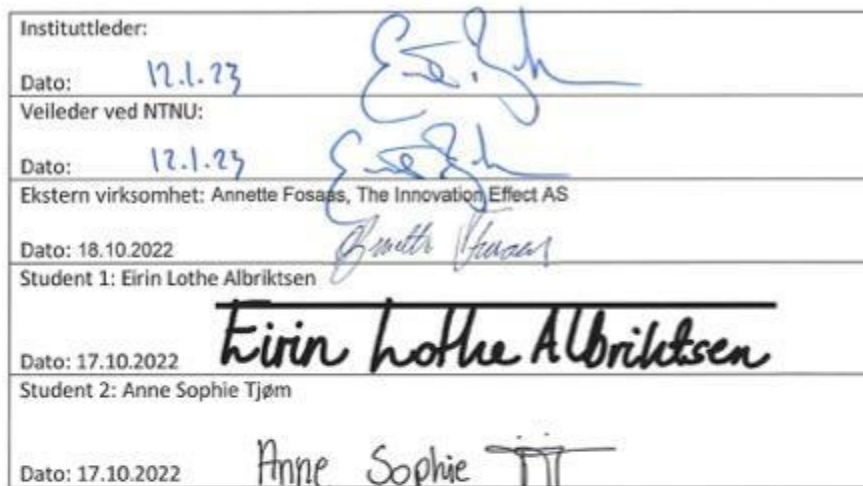 Instituttleder:
Dato: 12.1.23
Veileder ved NTNU:
Dato: 12.1.23
Ekstern virksomhet: Annette Fosaas, The Innovation Effect AS
Dato: 18.10.2022
Student 1: Eirin Lothe Albriktsen
Dato: 17.10.2022 Eirin Lothe Albriktsen
Student 2: Anne Sophie Tjøm
Dato: 17.10.2022 Anne Sophie